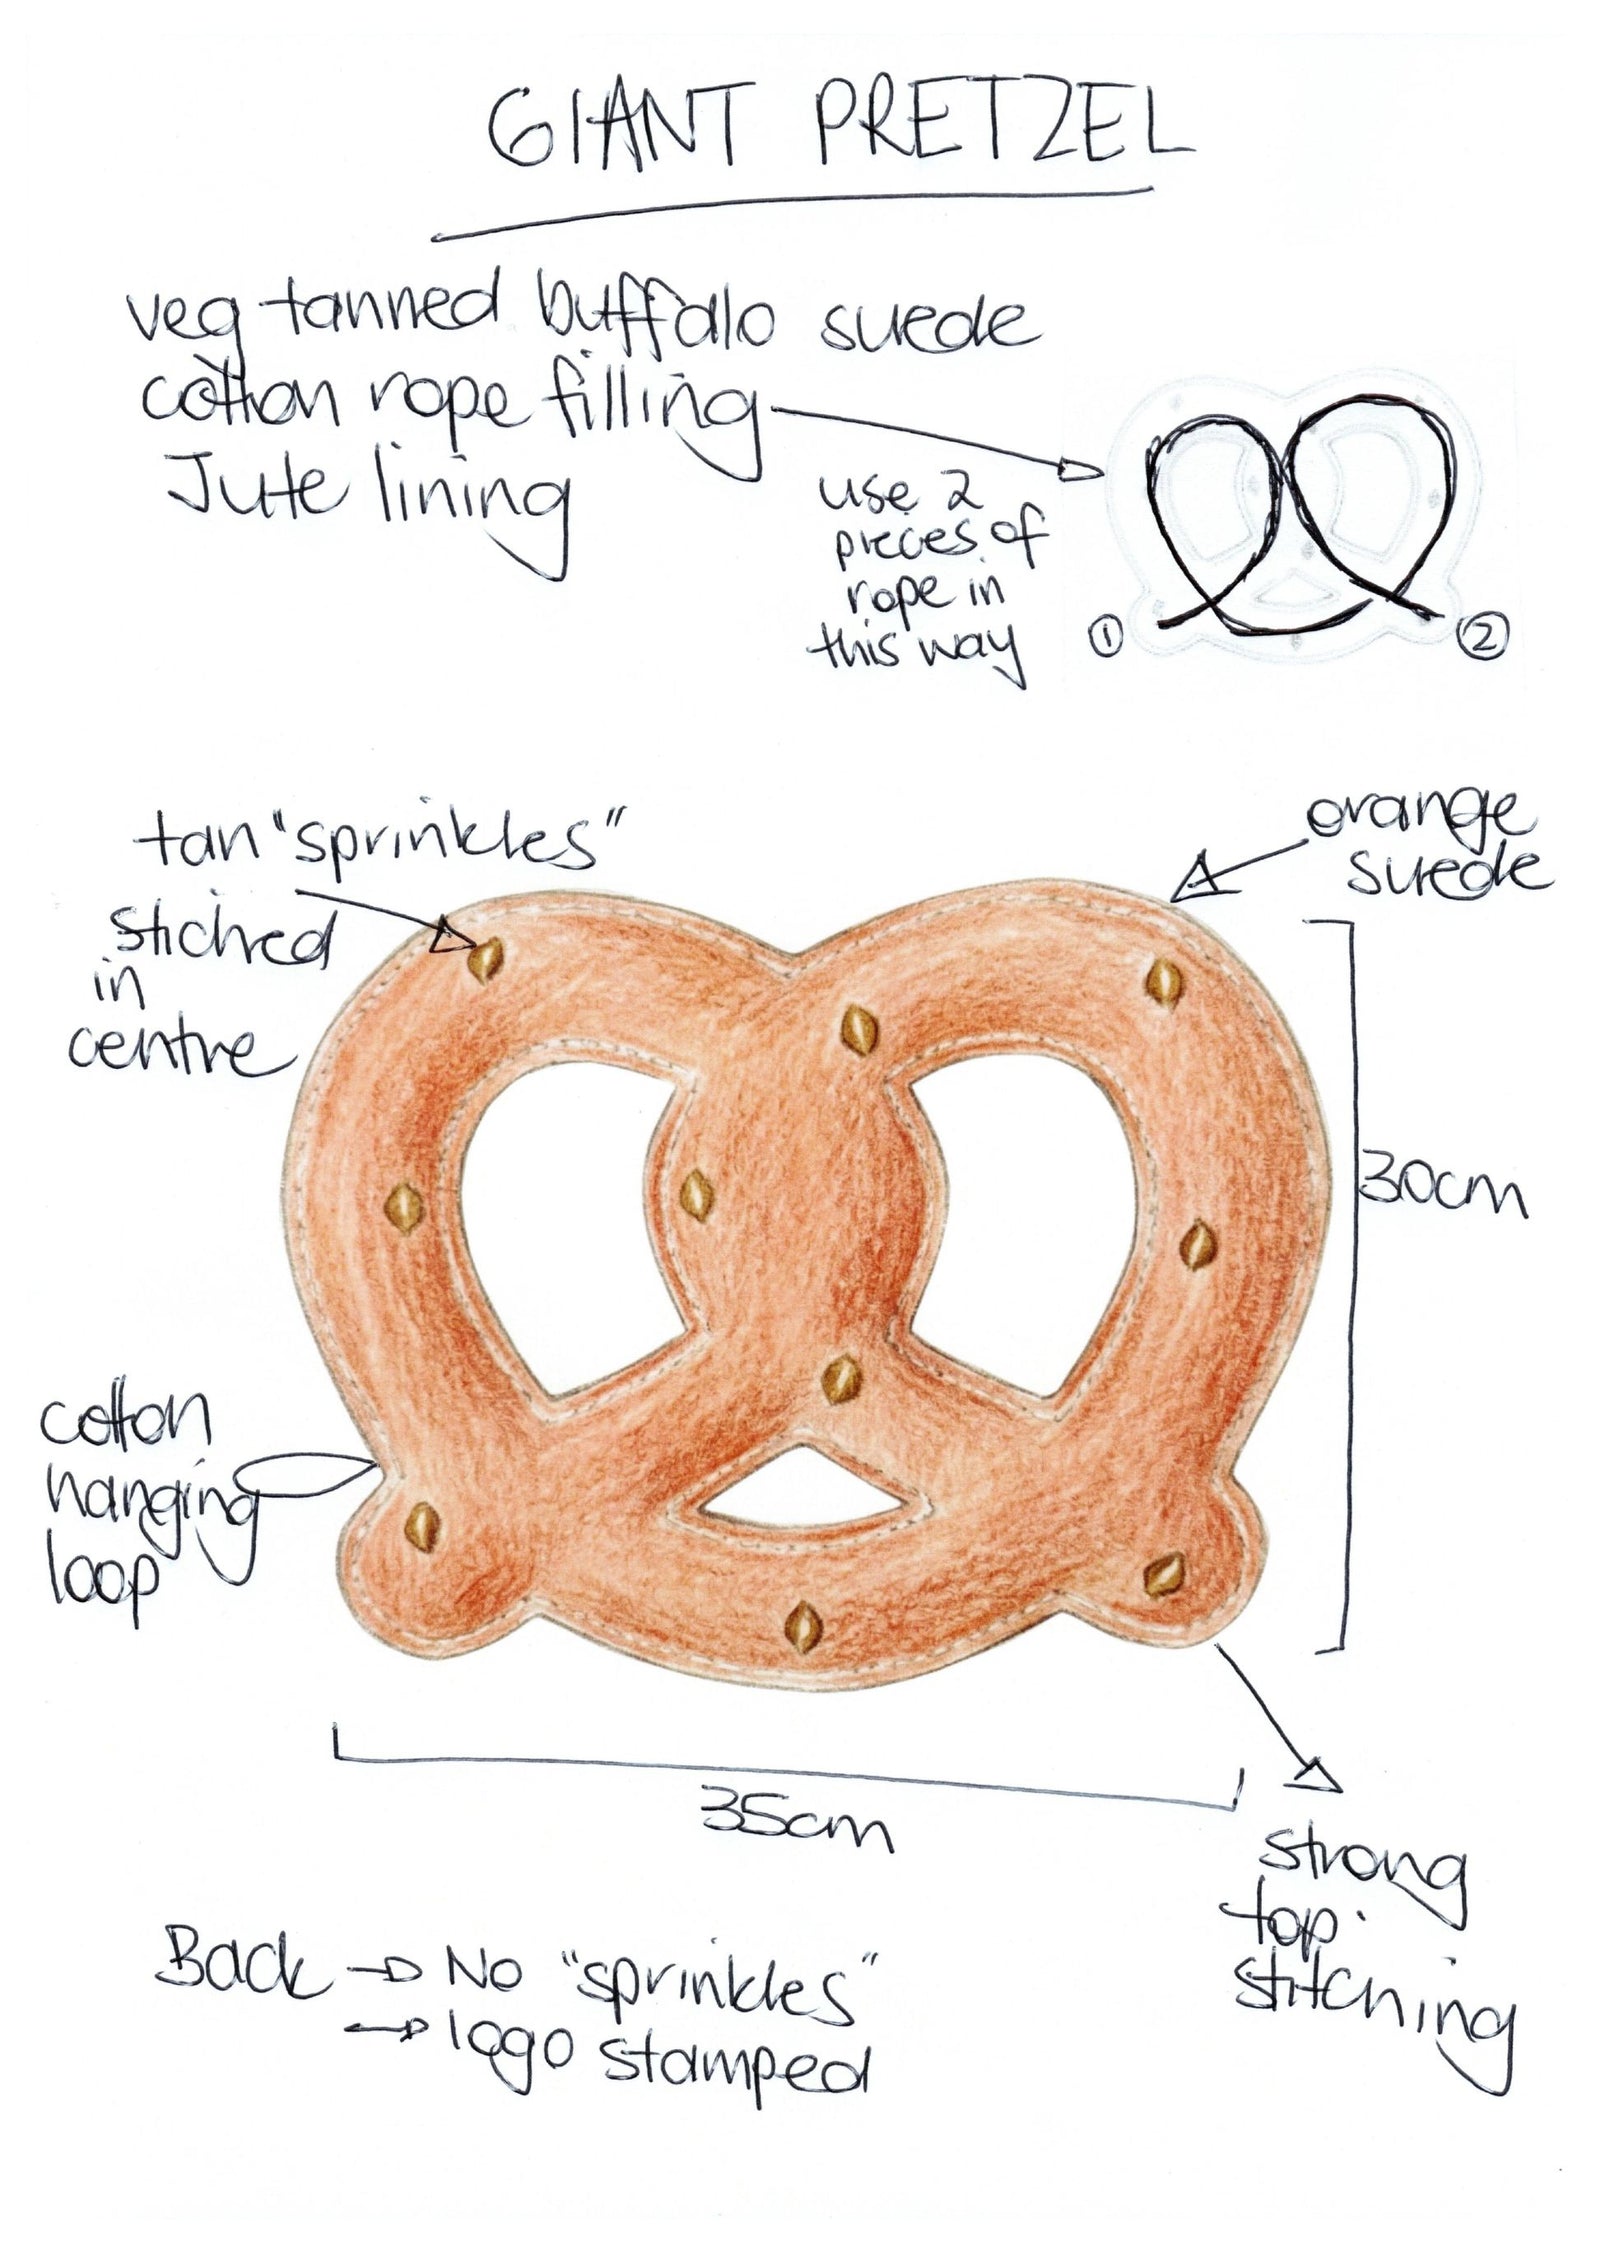 GIANT PRETZEL
veg tanned buffalo suede
cotton rope filling
Jute lining
use 2
pieces of
rope in
this way
①
②
tan "sprinkles"
stiched
in
centre
orange
suede
30cm
cotton
hanging
loop
35cm
strong
top
stitching
Back → No "sprinkles"
→ logo stamped